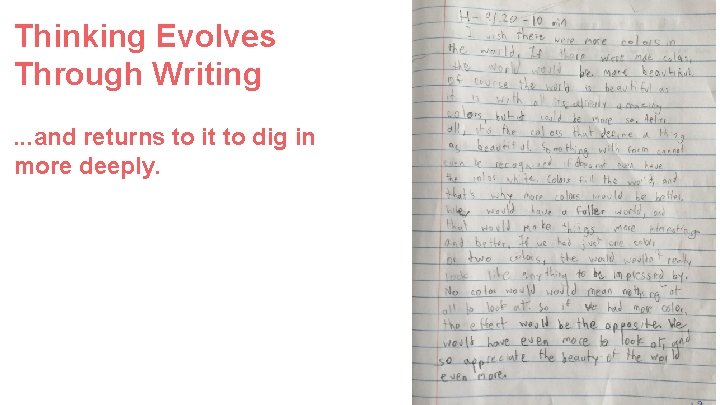 Thinking Evolves
Through Writing
...and returns to it to dig in
more deeply.
H - 9/20 - 10 min
I wish there were more colors in
the world. If there were more colors,
the world would be more beautiful.
Of course the world is beautiful as
it is with all its already amazing
colors, but it could be more so. After
all, it's the colors that define a thing
as beautiful. Something with form cannot
even be recognized if it doesnt even have
the color white. Colors fill the world, and
that's why more colors would be better.
We would have a fuller world, and
that would make things more interesting
and better. If we had just one color
or two colors, the world wouldn't really
look like anything to be impressed by.
No color would would mean nothing at
all to look at. So if we had more color,
the effect would be the opposite. We
would have even more to look at, and
so appreciate the beauty of the world
even more.